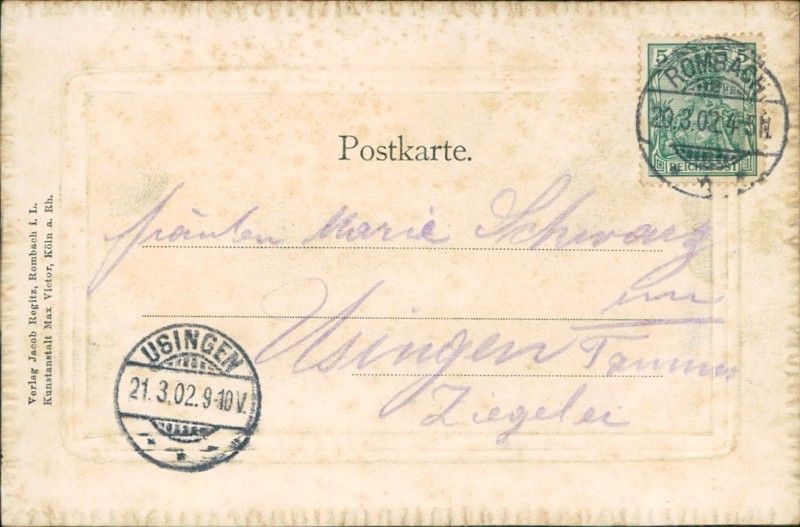 5 5
ROMBACH.
20.3.02.4-5N.
REICHSPOST
Postkarte.
Fräulein Marie Schwarz
im
Usingen Taunus
Ziegelei
USINGEN
21.3.02.9-10V.
Verlag Jacob Regitz, Rombach i. L.
Kunstanstalt Max Victor, Köln a. Rh.